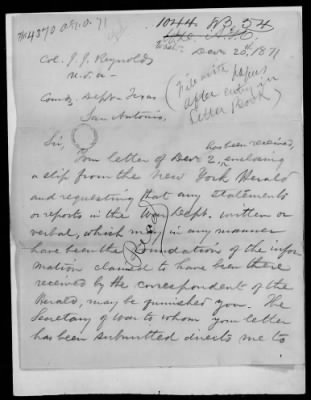 4370 A.G.O. 71
1044 W.B. 54
A.G.O.
Wash. Dec 20th, 1871
Col. J. J. Reynolds
U.S.A.
Comdg. Dept of Texas
San Antonio.
(File with papers
after entry in
Letter Book)
Sir,
Your letter of Dec 2, has been received, enclosing
a slip from the New York Herald
and requesting that any statements
or reports in the War Dept. written or
verbal, which may in any manner
have been the foundation of the infor
mation claimed to have been there
received by the correspondent of the
Herald, may be furnished you. The
Secretary of War to whom your letter
has been submitted directs me to